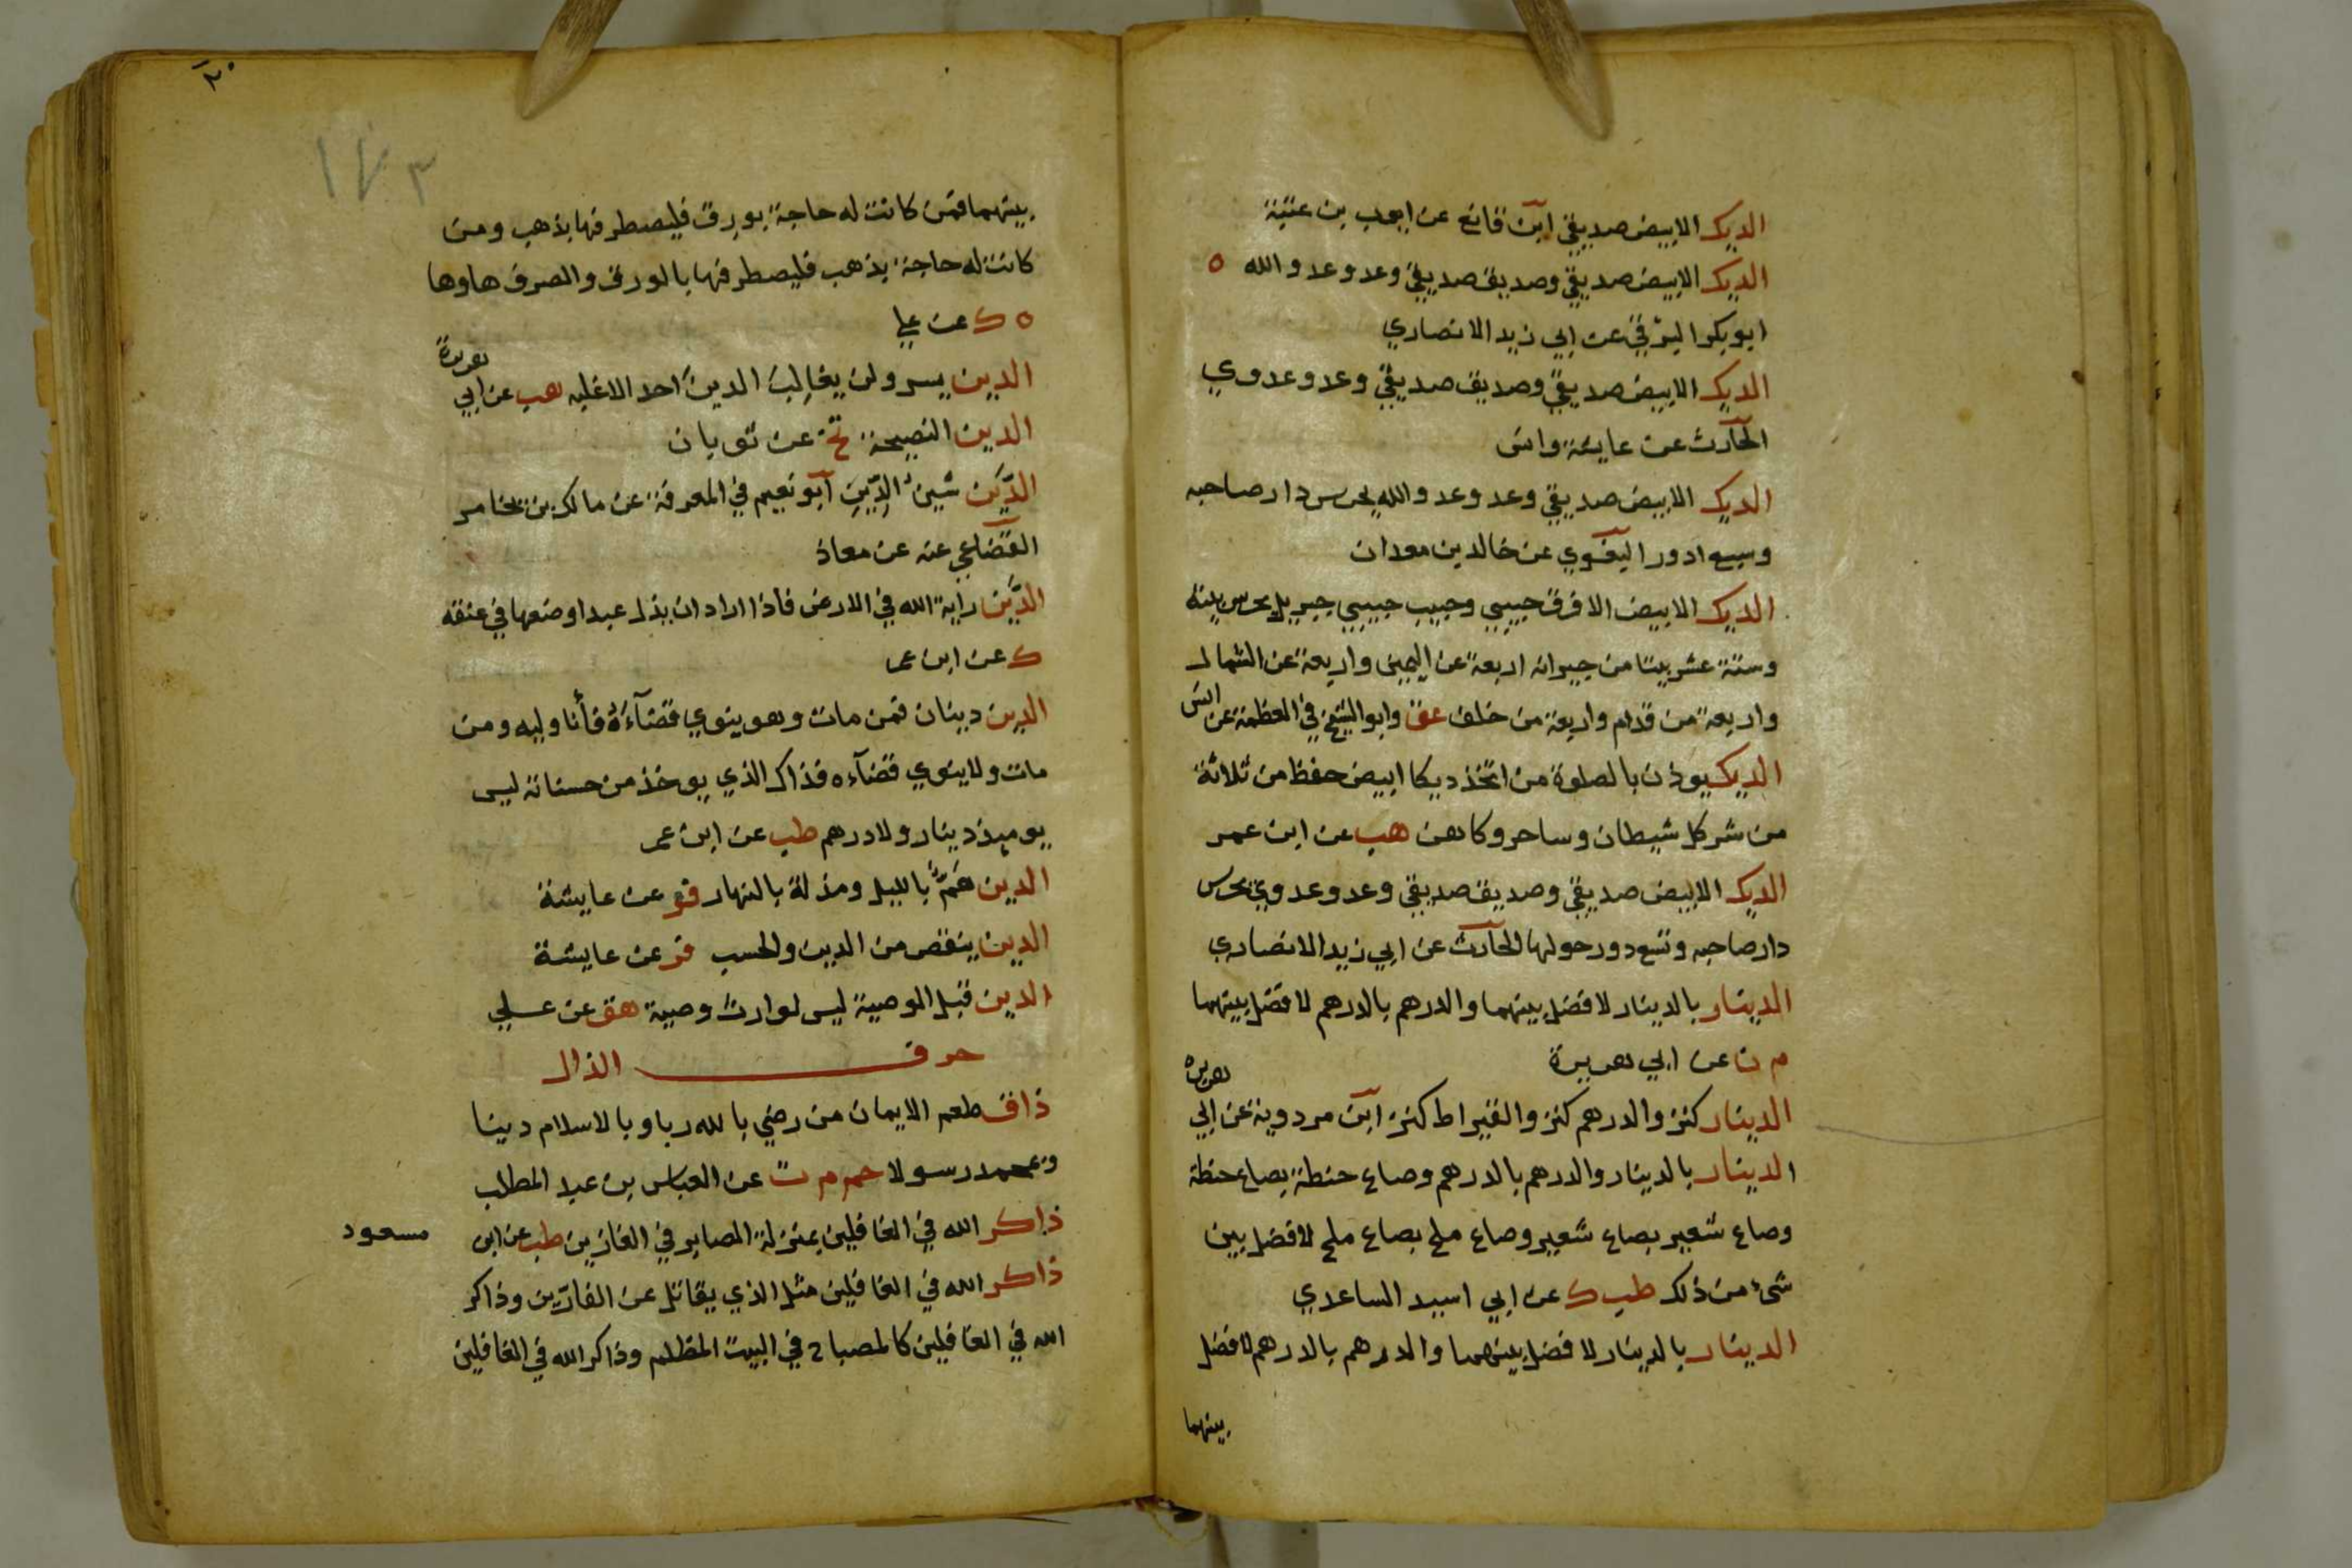 الديك الابيض صديقي ابن قانع عن ايوب بن عتبة
الديك الابيض صديقي وصديق صديقي وعدو عدو الله ه
ابو بكر البرقي عن ابي زيد الانصاري
الديك الابيض صديقي وصديق صديقي وعدو عدوي
الحارث عن عايشة وانس
الديك الابيض صديقي وعدو عدو الله يحرس دار صاحبه
وسبع ادور البغوي عن خالد بن معدان
الديك الابيض الافرق حبيبي وحبيب حبيبي جبريل يحرس بيته
وستة عشر بيتا من جيرانه اربعة عن اليمين واربعة عن الشمال
واربعة من قدام واربعة من خلف عق وابو الشيخ في العظمة عن انس
الديك يوذن بالصلوة من اتخذ ديكا ابيض حفظ من ثلاثة
من شر كل شيطان وساحر وكاهن هب عن ابن عمر
الديك الابيض صديقي وصديق صديقي وعدو عدوي يحرس
دار صاحبه وتسع دور حولها الحارث عن ابي زيد الانصاري
الدينار بالدينار لا فضل بينهما والدرهم بالدرهم لا فضل بينهما
م ن عن ابي هريرة
الدينار كنز والدرهم كنز والقيراط كنز ابن مردوية عن ابي هريره
الدينار بالدينار والدرهم بالدرهم وصاع حنطة بصاع حنطة
وصاع شعير بصاع شعير وصاع ملح بصاع ملح لا فضل بين
شئ من ذلك طب ك عن ابي اسيد الساعدي
الدينار بالدينار لا فضل بينهما والدرهم بالدرهم لا فضل
بينهما
٢٠
١٧٣
بينهما فمن كانت له حاجة بورق فليصطرفها بذهب ومن
كانت له حاجة بذهب فليصطرفها بالورق والصرف هاوها
ه ك عن علي
الدين يسر ولن يغالب الدين احد الا غلبه هب عن ابي هريرة
الدين النصيحة تخ عن ثوبان
الدين شين الدين ابو نعيم في المعرفة عن مالك بن يخامر
القضاعي عنه عن معاذ
الدين راية الله في الارض فاذا اراد ان يذل عبدا وضعها في عنقه
ك عن ابن عمر
الدين دينان فمن مات وهو ينوي قضآءه فأنا وليه ومن
مات ولا ينوي قضآءه فذاك الذي يوخذ من حسناته ليس
يوميذ دينار ولا درهم طب عن ابن عمر
الدين هم بالليل ومذلة بالنهار فر عن عايشة
الدين ينقص من الدين والحسب فر عن عايشة
الدين قبل الوصية ليس لوارث وصية هق عن علي
حرف الذال
ذاق طعم الايمان من رضي بالله ربا وبالاسلام دينا
وبمحمد رسولا حم م ت عن العباس بن عبد المطلب
ذاكر الله في الغافلين بمنزلة الصابر في الفارين طب عن ابن مسعود
ذاكر الله في الغافلين مثل الذي يقاتل عن الفارين وذاكر
الله في الغافلين كالمصباح في البيت المظلم وذاكر الله في الغافلين